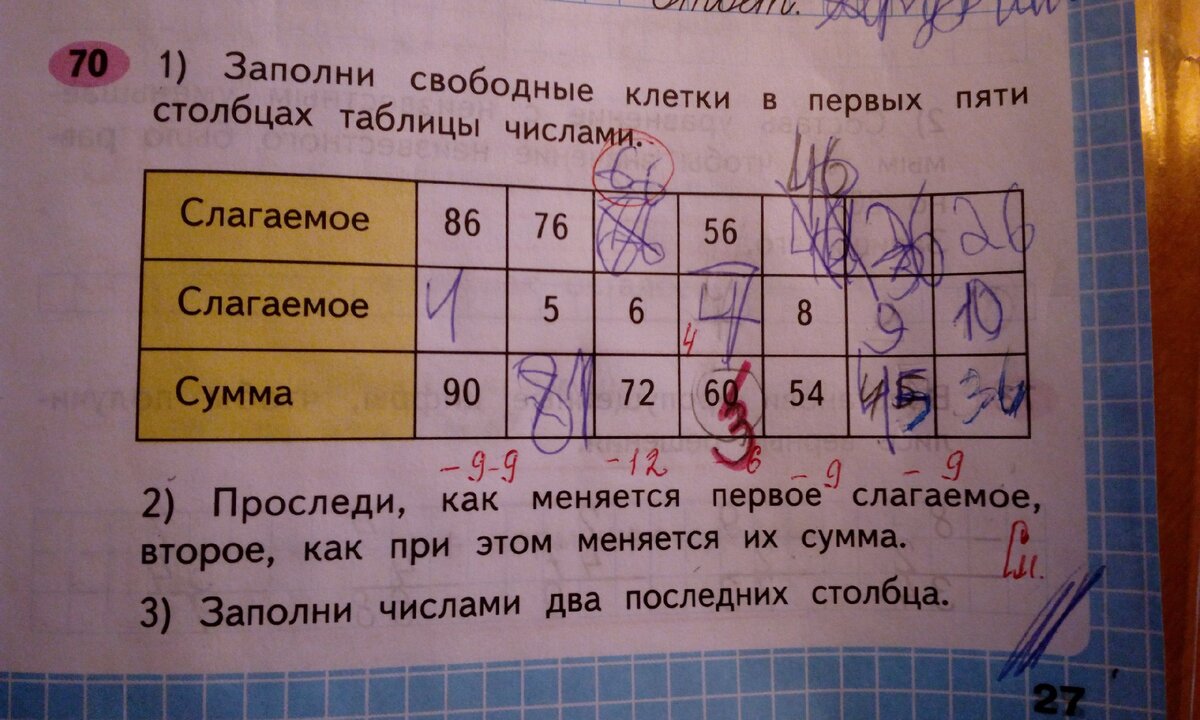 Ответ.
70 1) Заполни свободные клетки в первых пяти
столбцах таблицы числами.
46
Слагаемое 86 76 56 26
Слагаемое 4 5 6 7 8 9 10
4
Сумма 90 81 72 60 54 45 36
3
-9-9 -12 -6 -9 -9
2) Проследи, как меняется первое слагаемое,
второе, как при этом меняется их сумма.
См.
3) Заполни числами два последних столбца.
27